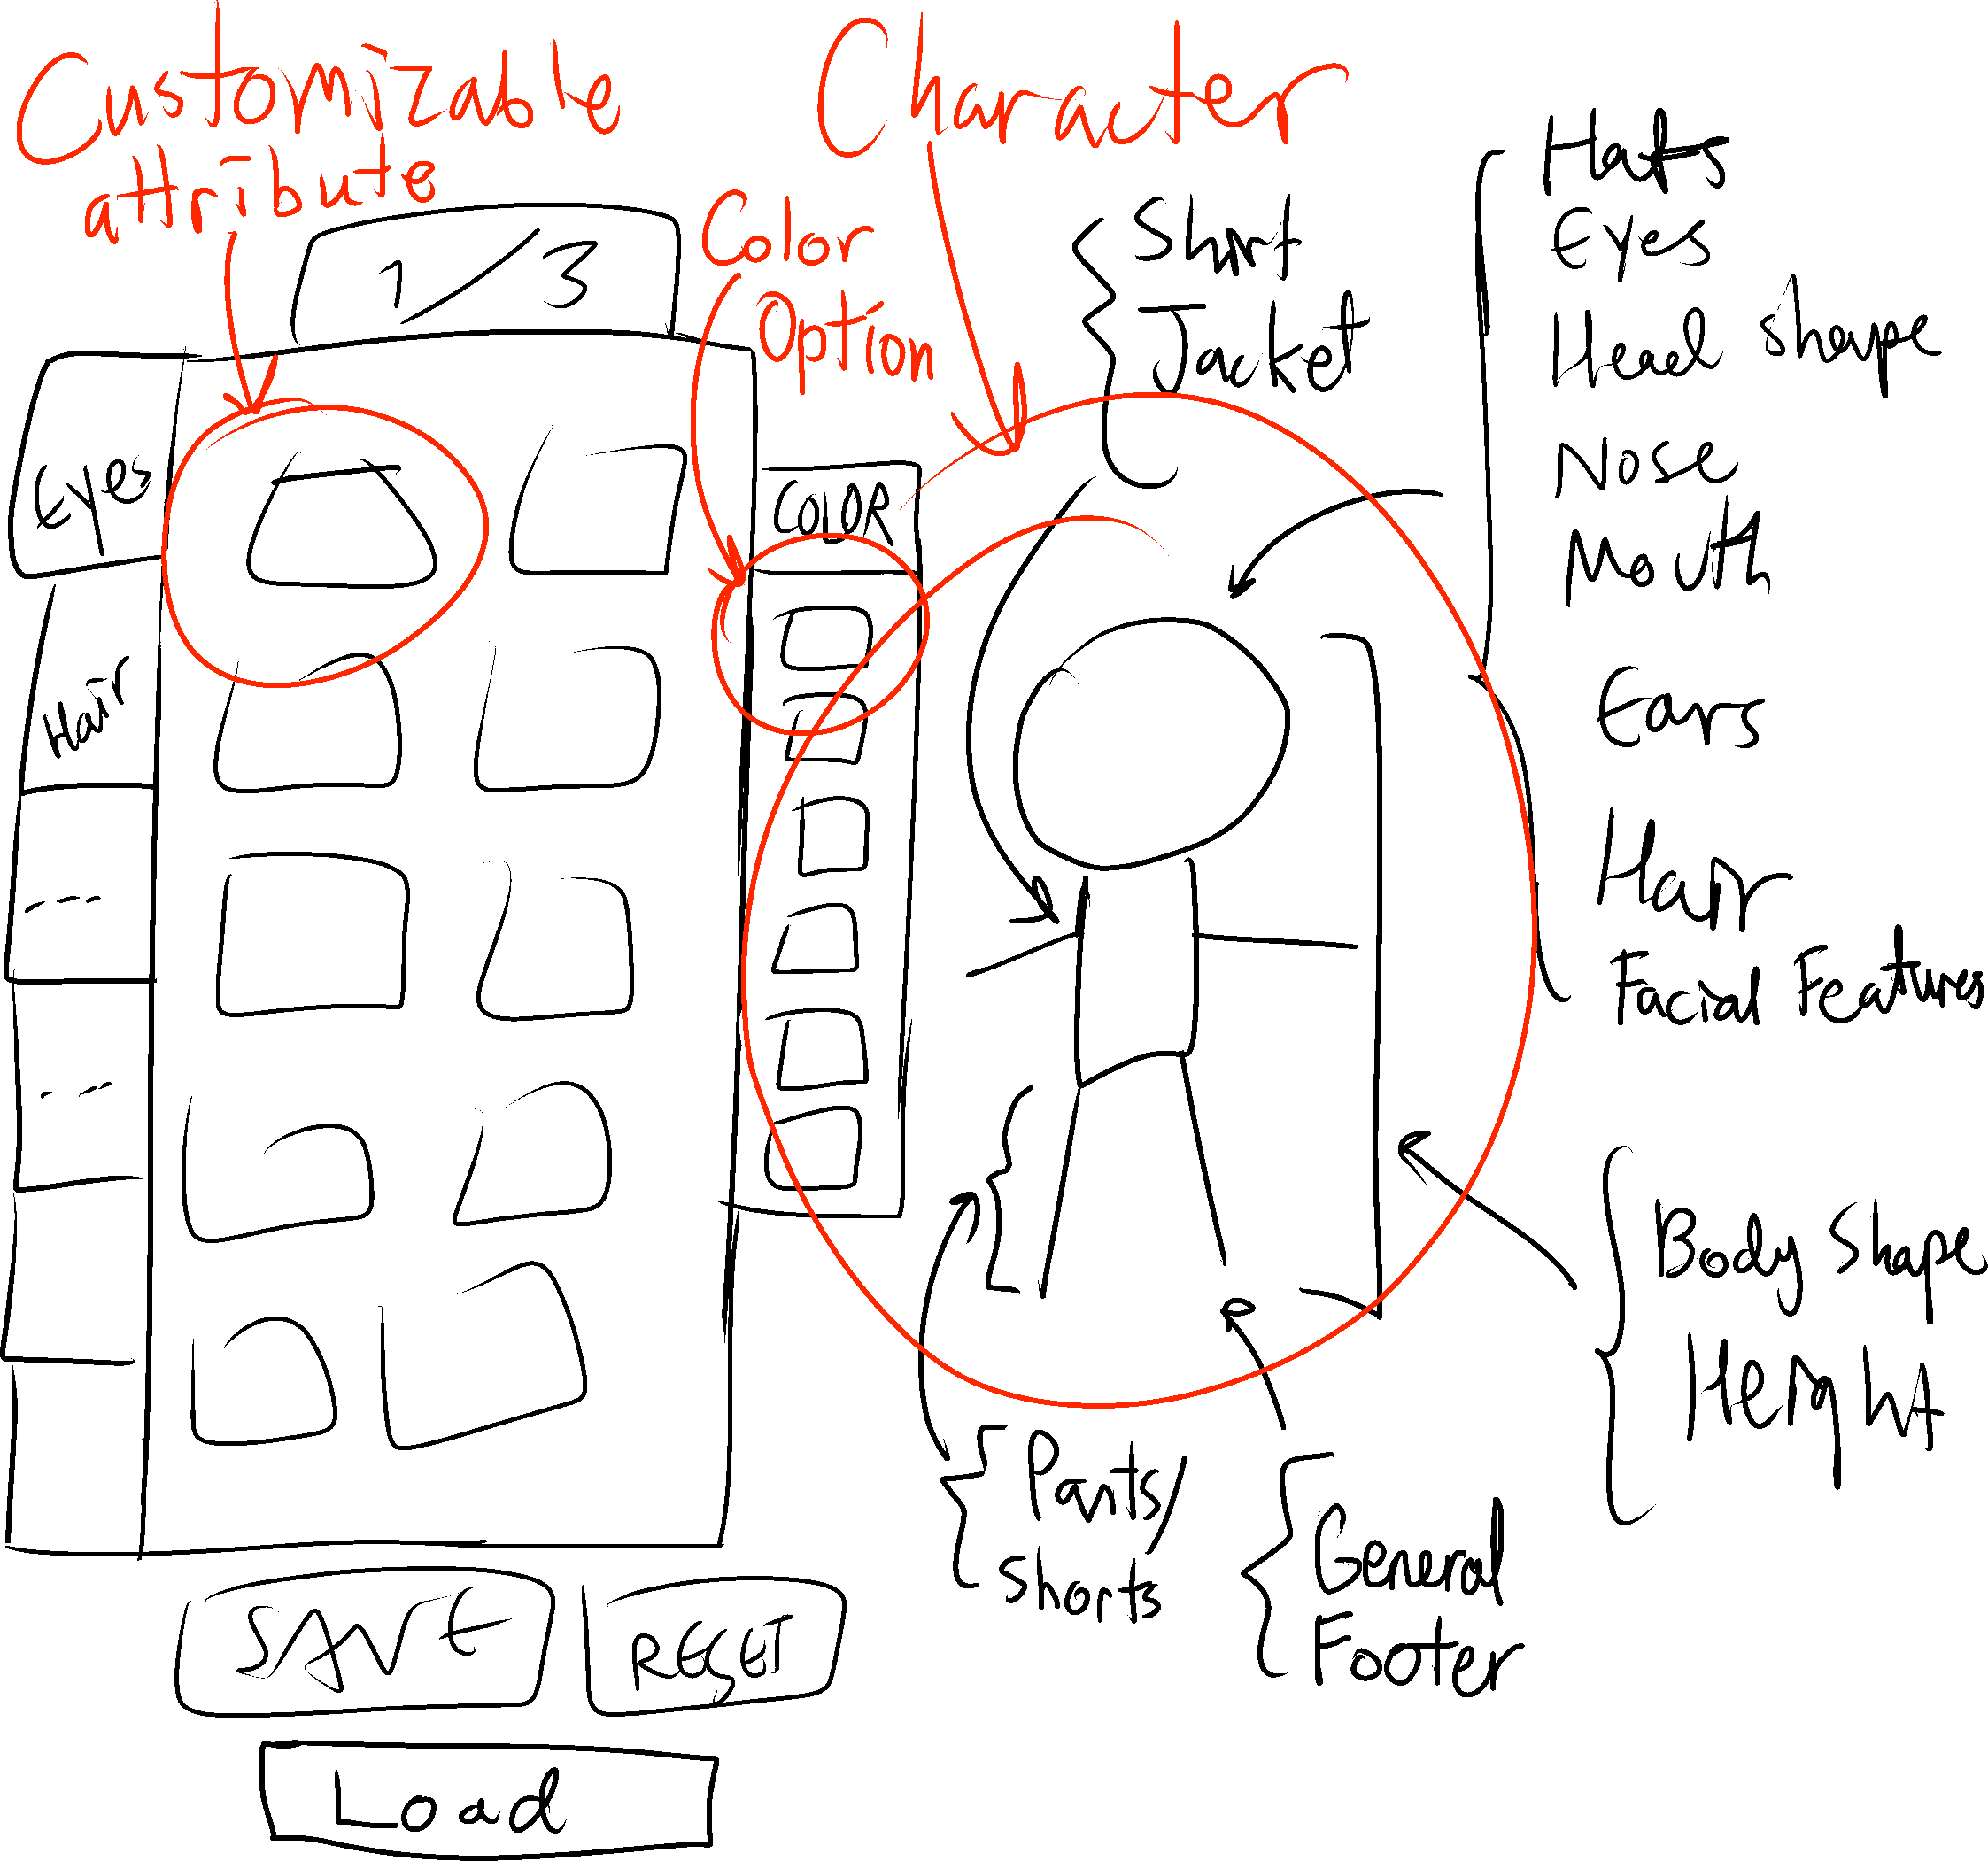 Customizable
attribute
Character
Color
Option
1/3
Eyes
Hair
---
---
COLOR
Shirt
Jacket
Hats
Eyes
Head shape
Nose
Mouth
Ears
Hair
Facial Features
Body Shape
Height
Pants/
shorts
General
Footer
SAVE
RESET
Load